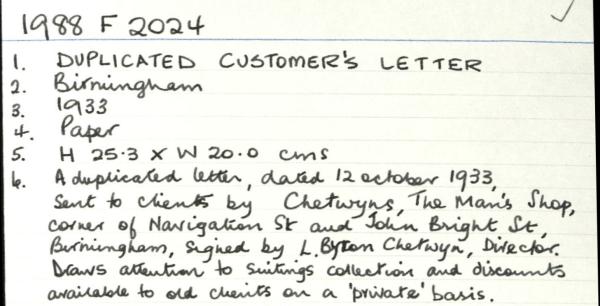 1988 F 2024
1. DUPLICATED CUSTOMER'S LETTER
2. Birmingham
3. 1933
4. Paper
5. H 25.3 X W 20.0 cms
6. A duplicated letter, dated 12 october 1933,
sent to clients by Chetwyns, The Man's Shop,
corner of Navigation St and John Bright St,
Birmingham, signed by L. Byron Chetwyn, Director.
Draws attention to suitings collection and discounts
available to old clients on a 'private' basis.